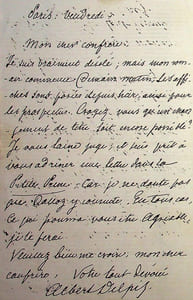 Paris. Vendredi
Mon cher confrère.
Je suis vraiment désolé; mais mon ro-
man commence demain matin. Les affi-
ches sont posées depuis hier; ainsi pour
les prospectus. Croyez-vous qu'un chan-
gement de titre soit encore possible?
Je vous laisse juge; et suis prêt à
vous adresser une lettre dans la
Petite Presse. Car je ne doute pas
que y consente. En tous cas,
ce qui pourra vous être agréable,
je le ferai.
Veuillez bien me croire, mon cher
confrère, Votre tout dévoué
Albert Delpit